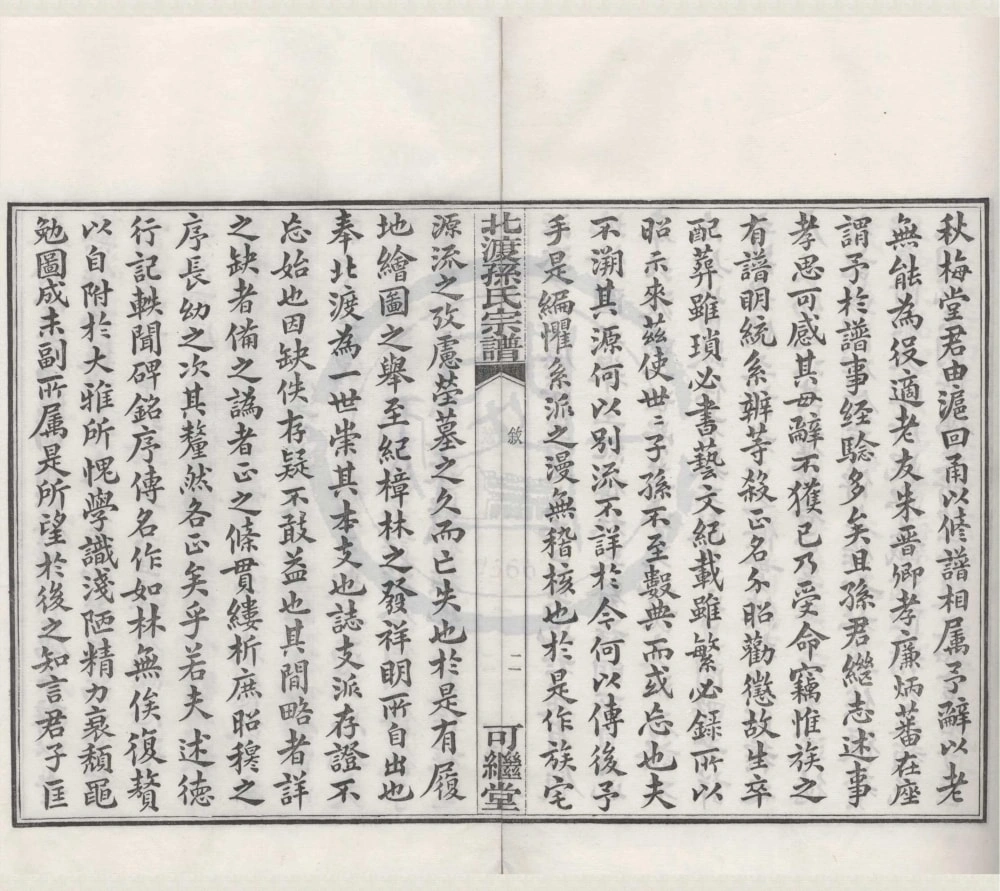 秋梅堂君由滬回甬以修譜相属予辭以老
無能為役適老友朱晋卿孝廉炳蕃在座
謂予於譜事经騐多矣且孫君繼志述事
孝思可感其毋辭不獲已乃受命竊惟族之
有譜明統系辨等殺正名分昭勸懲故生卒
配葬雖瑣必書藝文紀載雖繁必録所以
昭示來茲使世子孫不至數典而或忘也夫
不溯其源何以别流不詳於今何以傳後予
手是編懼系派之漫無稽核也於是作族宅
北渡孫氏宗譜
敘
二
可繼堂
源流之攷慮塋墓之久而亡失也於是有履
地繪圖之舉至紀樟林之發祥明所自出也
奉北渡為一世崇其本支也誌支派存證不
忘始也因缺佚存疑不敢益也其間略者詳
之缺者備之譌者正之條貫縷析庶昭穆之
序長幼之次其釐然各正矣乎若夫述徳
行記軼聞碑銘序傳名作如林無俟復贅
以自附於大雅所愧學識淺陋精力衰頹黽
勉圖成未副所属是所望於後之知言君子匡